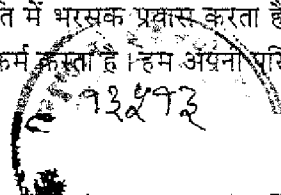 ते में भरसक प्रयास करता है
कर्म करता है । हम अपना परि
१३५१३